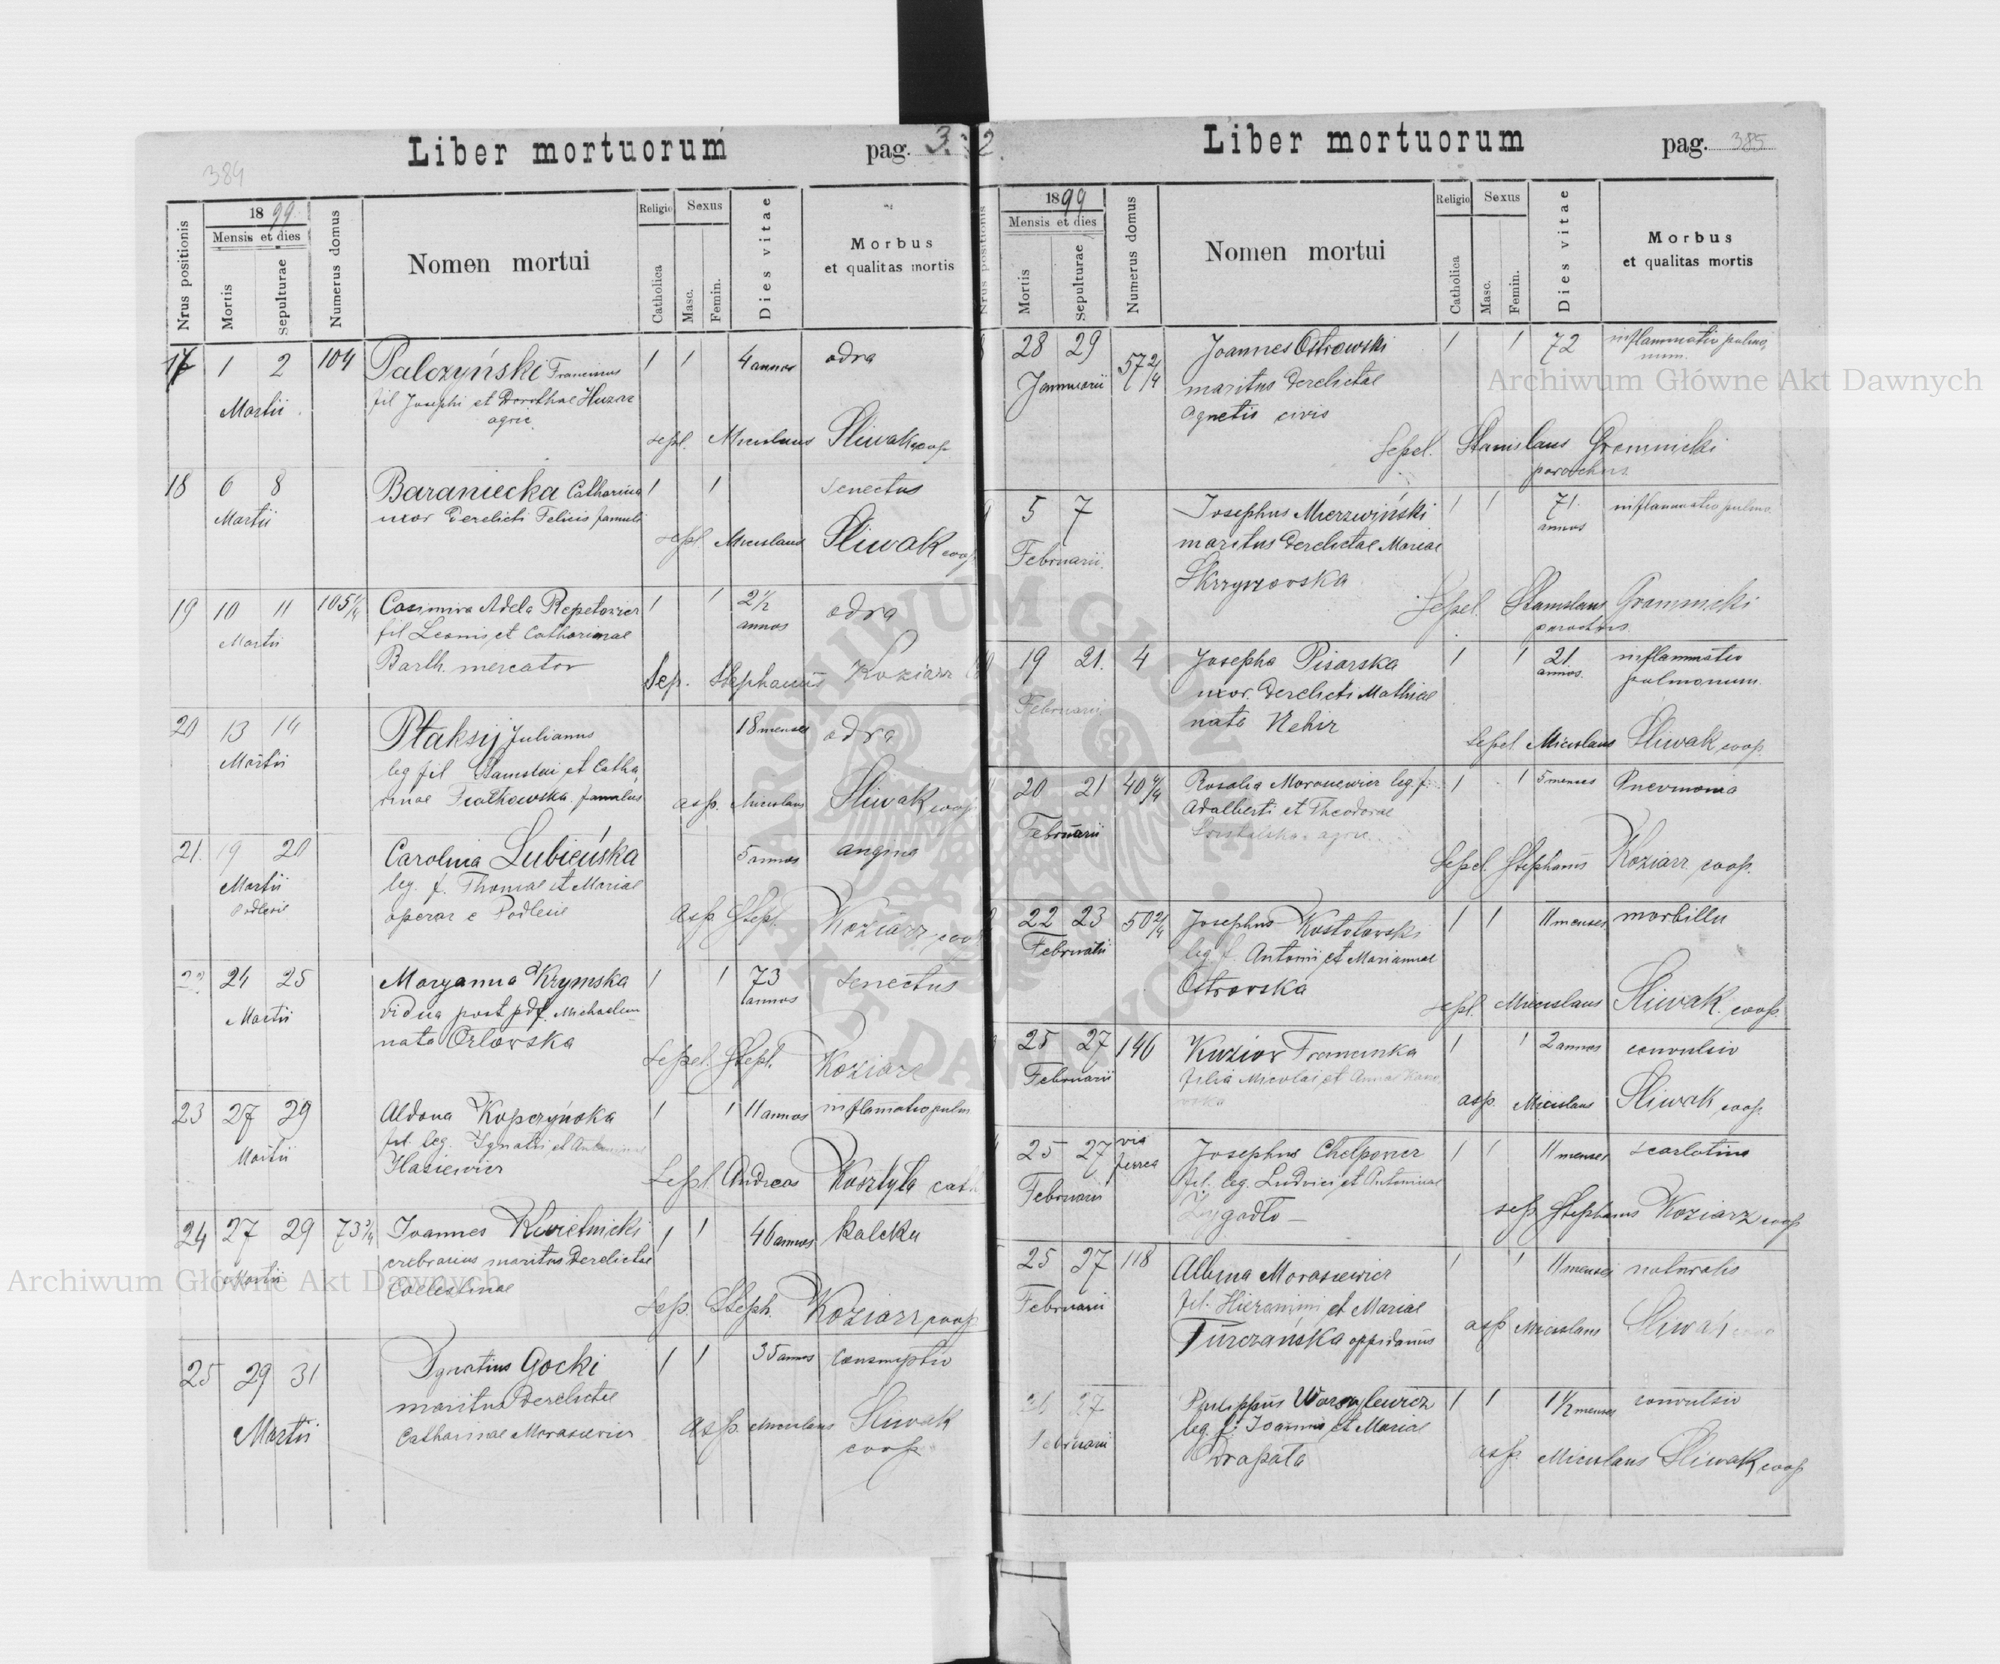 384
Liber mortuorum
pag. 3.
Nrus positionis
1899
Mensis et dies
Mortis
Sepulturae
Numerus domus
Nomen mortui
Religio
Catholica
Sexus
Masc.
Femin.
Dies vitae
Morbus
et qualitas mortis
17 1 2 104 Palczyński Franciscus 1 1 4 annos odra
Martii
fil Josephi et Dorothae Huzar
agric.
sepl. Miecislaus Śliwak coop
18 6 8 Baraniecka Catharina 1 1 senectus
Martii
uxor derelicti Felicis famuli
sepl. Miecislaus Śliwak coop
19 10 11 105 1/4 Casimira Adela Repetowicz 1 1 2 1/2 annos odra
Martii
fil Leonis et Catharinae
Barth mercator
Sep. Stephanus Koziarz
20 13 14 Ptaksij Julianus 18 menses odra
Martii
leg fil Stanislai et Catha
rinae famulus
asp. Miecislaus Śliwak coop
21. 19 20 Carolina Lubieńska 5 annos angina
Martii
Podlesie
leg. f. Thomae et Mariae
operar e Podlesie
asp Steph. Koziarz, coop
22 24 25 Maryanna Krymska 1 1 73 annos senectus
Martii
vidua post pdf. Michaelem
nata Orlowska
Sepel. Steph. Koziarz
23 27 29 Aldona Kopczyńska 1 1 11 annos inflamatio pulm
Martii
fil. leg. Ignatii et
Hasiewicz
Sepl. Andreas Kosztyła cath
24 27 29 73 3/4 Joannes Kwietnicki 1 1 46 annos kaleka
Martii
cribrarius maritus derelictae
Coelestinae
Sep. Steph. Koziarz coop
25 29 31 Ignatius Gocki 1 1 35 annos consumptio
Martii
maritus derelictae
Catharinae Morasiewicz
asp. Miecislaus Śliwak
coop
2.
Liber mortuorum
pag. 385
Nrus positionis
1899
Mensis et dies
Mortis
Sepulturae
Numerus domus
Nomen mortui
Religio
Catholica
Sexus
Masc.
Femin.
Dies vitae
Morbus
et qualitas mortis
28 29 57 2/4 Joannes Ostrowski 1 1 72 inflammatio pulmo
num.
Januarii
maritus derelictae
Agnetis civis
Sepel. Stanislaus Gromnicki
parochus
5 7 Josephus Mierzwiński 1 1 71 annos inflammatio pulmo.
Februarii.
maritus derelictae Mariae
Skrzyszowska
Sepel. Stanislaus Gromnicki
parochus.
19 21. 4 Josepha Pisarska 1 1 21 annos. inflammatio
pulmonum.
Februarii
uxor. derelicti Mathiae
nata Nehir
Sepel Miecislaus Śliwak, coop.
20 21 40 4/4 Rosalia Morasiewicz leg. f. 1 1 5 menses Pneumonia
Februarii
Adalberti et Theodorae
agric.
Sepel. Stephanus Koziarz, coop.
22 23 50 2/4 Josephus Kostołowski 1 1 11 menses morbilli
Februarii
leg. f. Antonii et Mariannae
Ostrowska
sepl. Miecislaus Śliwak. coop.
25 27 146 Kuzior Franciska 1 1 2 annos convulsio
Februarii
filia Nicolai et Anna
asp. Miecislaus Śliwak, coop.
25 27 via ferrea Josephus Chelponer 1 1 11 menses scarlatina
Februarii
fil. leg. Ludvici et Antoninae
Żygadło
sep. Stephanus Koziarz coop
25 27 118 Albina Morasiewicz 1 1 11 menses naturalis
Februarii
fil. Hieronimi et Mariae
Turczańska oppidanus
asp Miecislaus Śliwak
27 Philippus Warzylewicz 1 1 1 1/2 menses convulsio
Februarii
leg. f. Joannis et Mariae
Drapała
asp. Miecislaus Śliwak coop
Archiwum Główne Akt Dawnych
Archiwum Główne Akt Dawnych
ARCHIWUM GŁÓWNE AKT DAWNYCH